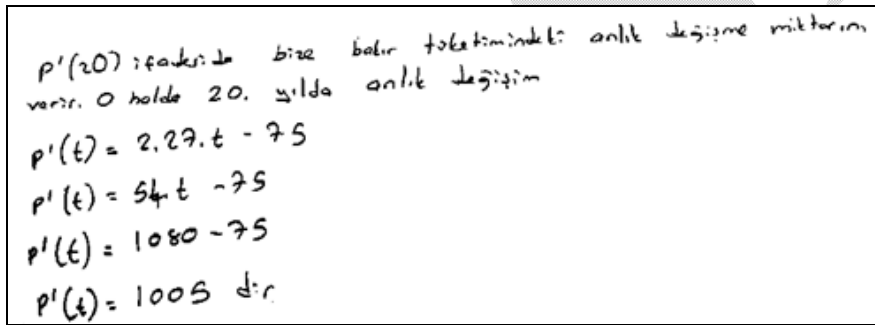 p'(20) ifadesi de bize bakır tüketimindeki anlık değişme miktarını
verir. O halde 20. yılda anlık değişim
p'(t) = 2.27.t - 75
p'(t) = 54.t - 75
p'(t) = 1080 - 75
p'(t) = 1005 dir